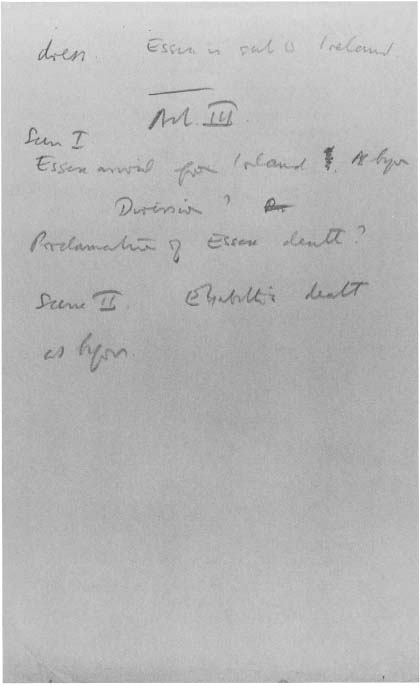 dress. Essex is sent to Ireland.
Act III.
Scene I
Essex arrival from Ireland as before
Diversion?
Proclamation of Essex death?
Scene II. Elizabeth's death
as before.